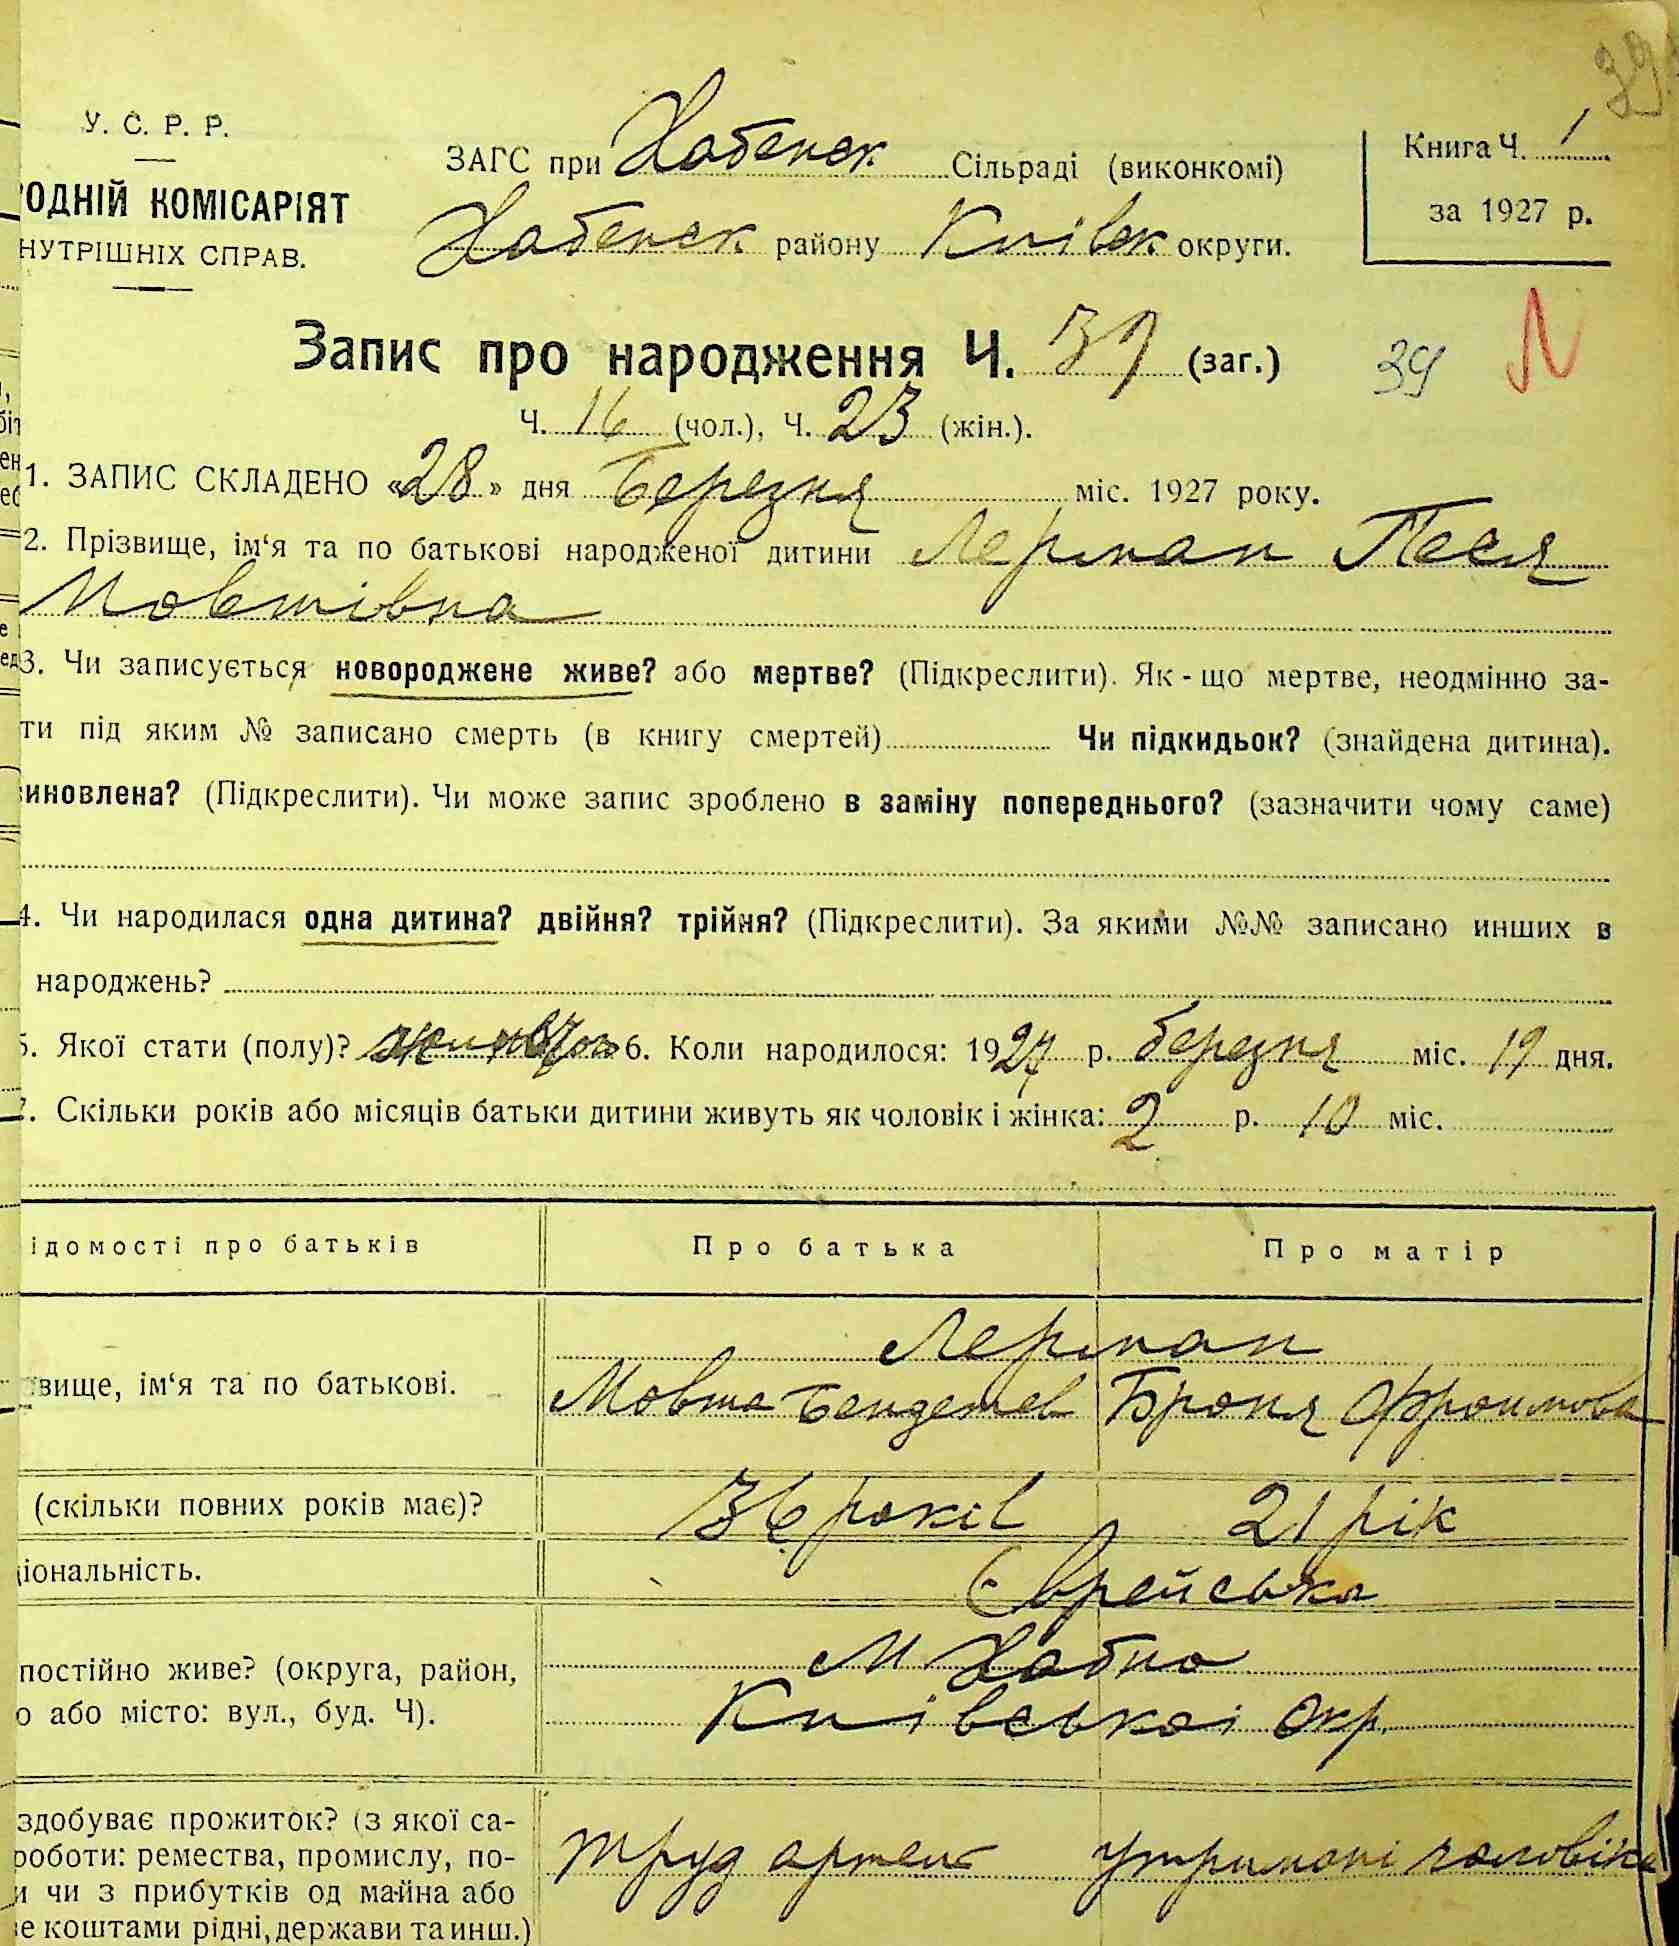 39
У. С. Р. Р.
ОДНІЙ КОМІСАРІЯТ
НУТРІШНІХ СПРАВ.
ЗАГС при Хабенск Сільраді (виконкомі)
Хабенск району Київск округи.
Книга Ч. 1
за 1927 р.
Запис про народження Ч. 39 (заг.) 39
Ч. 16 (чол.), Ч. 23 (жін.).
1. ЗАПИС СКЛАДЕНО «28» дня Березня міс. 1927 року.
2. Прізвище, ім‘я та по батькові народженої дитини Лерман Песя
Мовшівна
3. Чи записується новороджене живе? або мертве? (Підкреслити). Як-що мертве, неодмінно за-
ти під яким № записано смерть (в книгу смертей) Чи підкидьок? (знайдена дитина).
иновлена? (Підкреслити). Чи може запис зроблено в заміну попереднього? (зазначити чому саме)
4. Чи народилася одна дитина? двійня? трійня? (Підкреслити). За якими №№ записано инших в
народжень?
5. Якої стати (полу)? 6. Коли народилося: 1927 р. березня міс. 19 дня.
7. Скільки років або місяців батьки дитини живуть як чоловік і жінка: 2 р. 10 міс.
ідомості про батьків Про батька Про матір
Лерман
звище, ім‘я та по батькові. Мовша Бендетов Броня Фроимова
(скільки повних років має)? 36 років 21 рік
ціональність. Єврейська
постійно живе? (округа, район, М Хабно
о або місто: вул., буд. Ч). Київської окр.
здобуває прожиток? (з якої са-
роботи: ремества, промислу, по- труд артель утримані чоловіка
и чи з прибутків од майна або
е коштами рідні, держави та инш.)